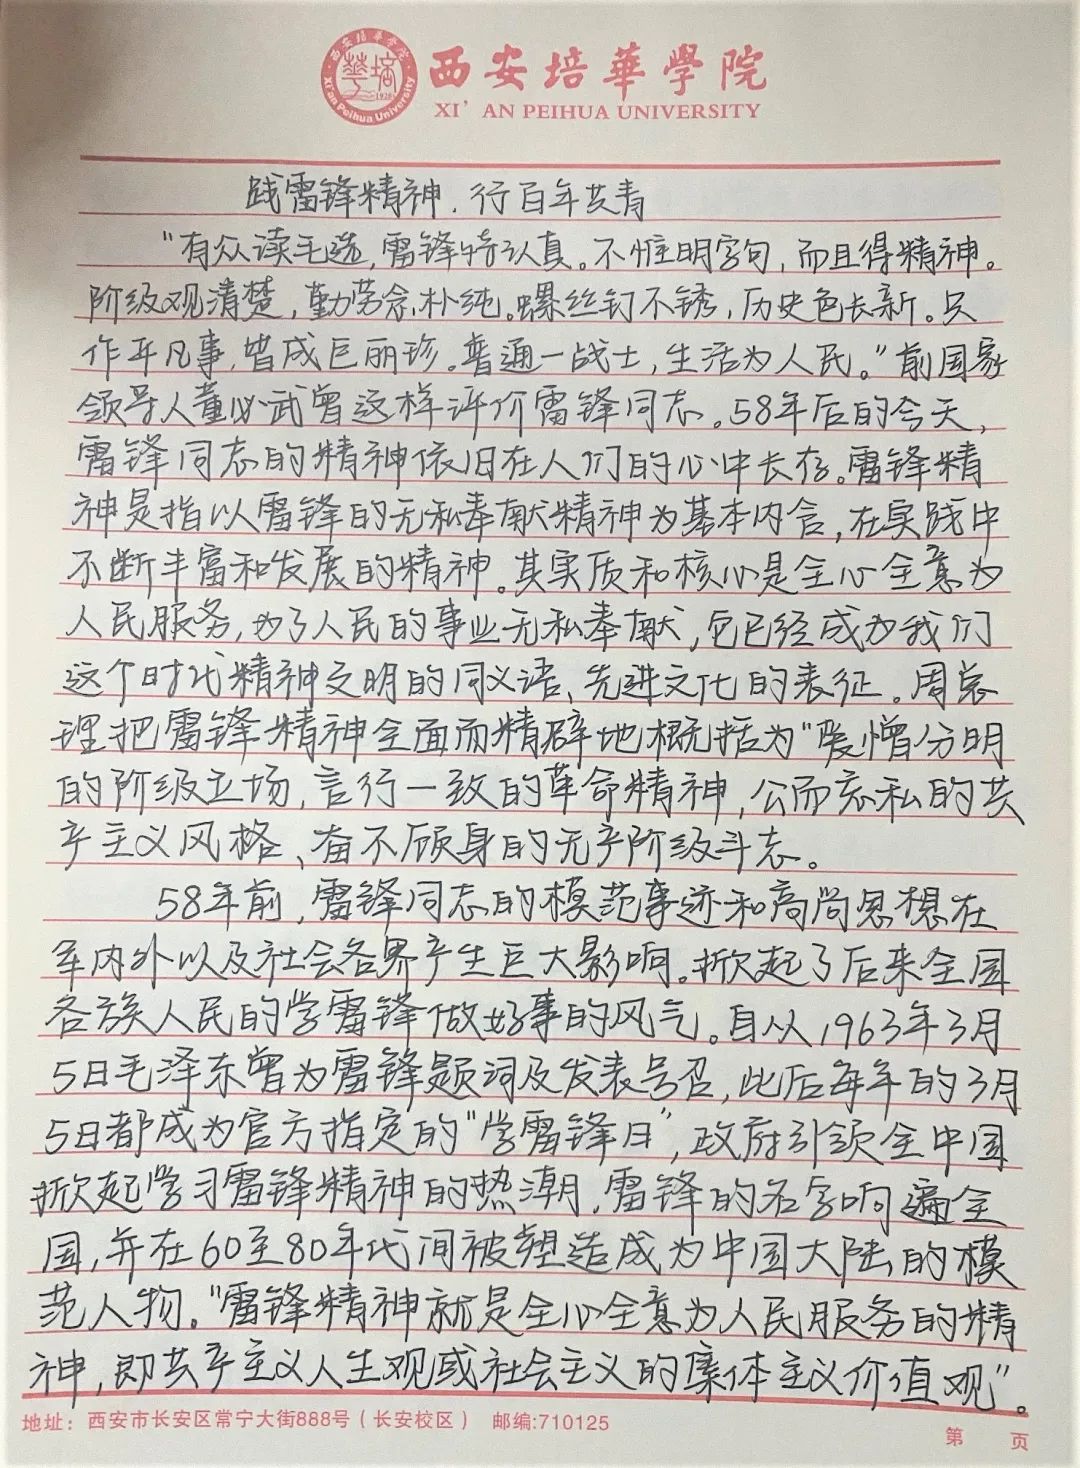 西安培華学院
XI'AN PEIHUA UNIVERSITY
践雷锋精神，行百年共青
“有众读毛选，雷锋特认真。不惟明字句，而且得精神。
阶级观清楚，勤劳念朴纯。螺丝钉不锈，历史色长新。只
作平凡事，皆成巨丽珍。普通一战士，生活为人民。”前国家
领导人董必武曾这样评价雷锋同志。58年后的今天，
雷锋同志的精神依旧在人们的心中长存。雷锋精
神是指以雷锋的无私奉献精神为基本内含，在实践中
不断丰富和发展的精神。其实质和核心是全心全意为
人民服务，为了人民的事业无私奉献，它已经成为我们
这个时代精神文明的同义语、先进文化的表征。周总
理把雷锋精神全面而精辟地概括为“爱憎分明
的阶级立场，言行一致的革命精神，公而忘私的共
产主义风格、奋不顾身的无产阶级斗志。
58年前，雷锋同志的模范事迹和高尚思想在
军内外以及社会各界产生巨大影响。掀起了后来全国
各族人民的学雷锋做好事的风气。自从1963年3月
5日毛泽东曾为雷锋题词及发表号召，此后每年的3月
5日都成为官方指定的“学雷锋日”，政府引领全中国
掀起学习雷锋精神的热潮，雷锋的名字响遍全
国，并在60至80年代间被塑造成为中国大陆的模
范人物。“雷锋精神就是全心全意为人民服务的精
神，即共产主义人生观或社会主义的集体主义价值观”。
地址：西安市长安区常宁大街888号（长安校区） 邮编:710125
第 页